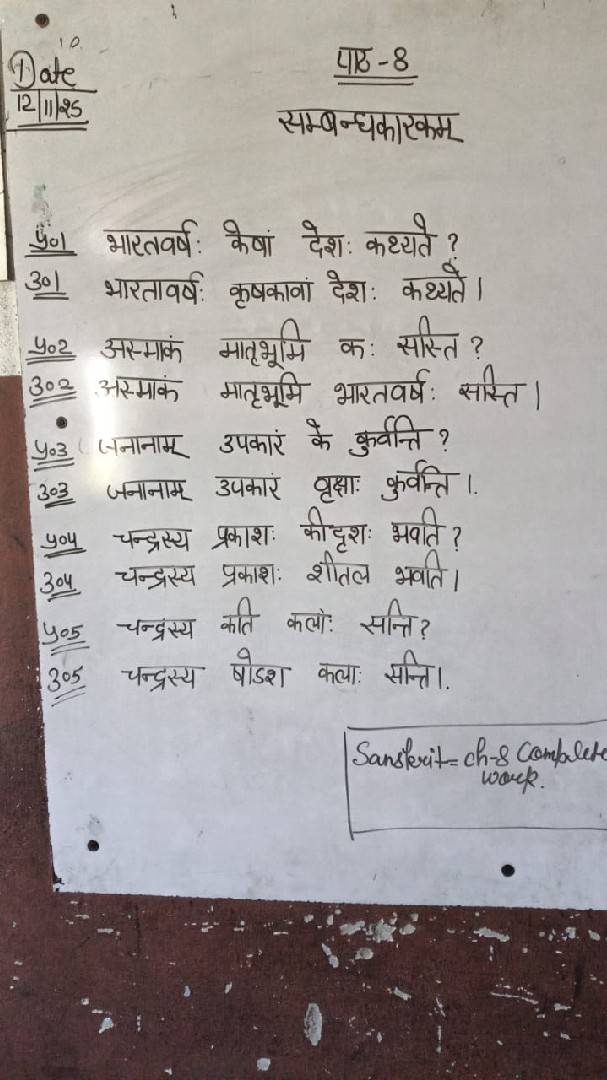 Date
12/11/25
पाठ - 8
सम्बन्धकारकम्
प्र०1 भारतवर्षः केषां देशः कथ्यते ?
उ०1 भारतावर्षः कृषकावां देशः कथ्यते ।
प्र०2 अस्माकं मातृभूमि कः सस्ति ?
उ०2 अस्माकं मातृभूमि भारतवर्षः सस्ति ।
प्र०3 जनानाम् उपकारं के कुर्वन्ति ?
उ०3 जनानाम् उपकारं वृक्षाः कुर्वन्ति ।
प्र०4 चन्द्रस्य प्रकाशः कीदृशः भवति ?
उ०4 चन्द्रस्य प्रकाशः शीतल भवति ।
प्र०5 चन्द्रस्य कति कलाः सन्ति ?
उ०5 चन्द्रस्य षोडश कलाः सन्ति ।
Sanskrit = ch-8 Complete
work.